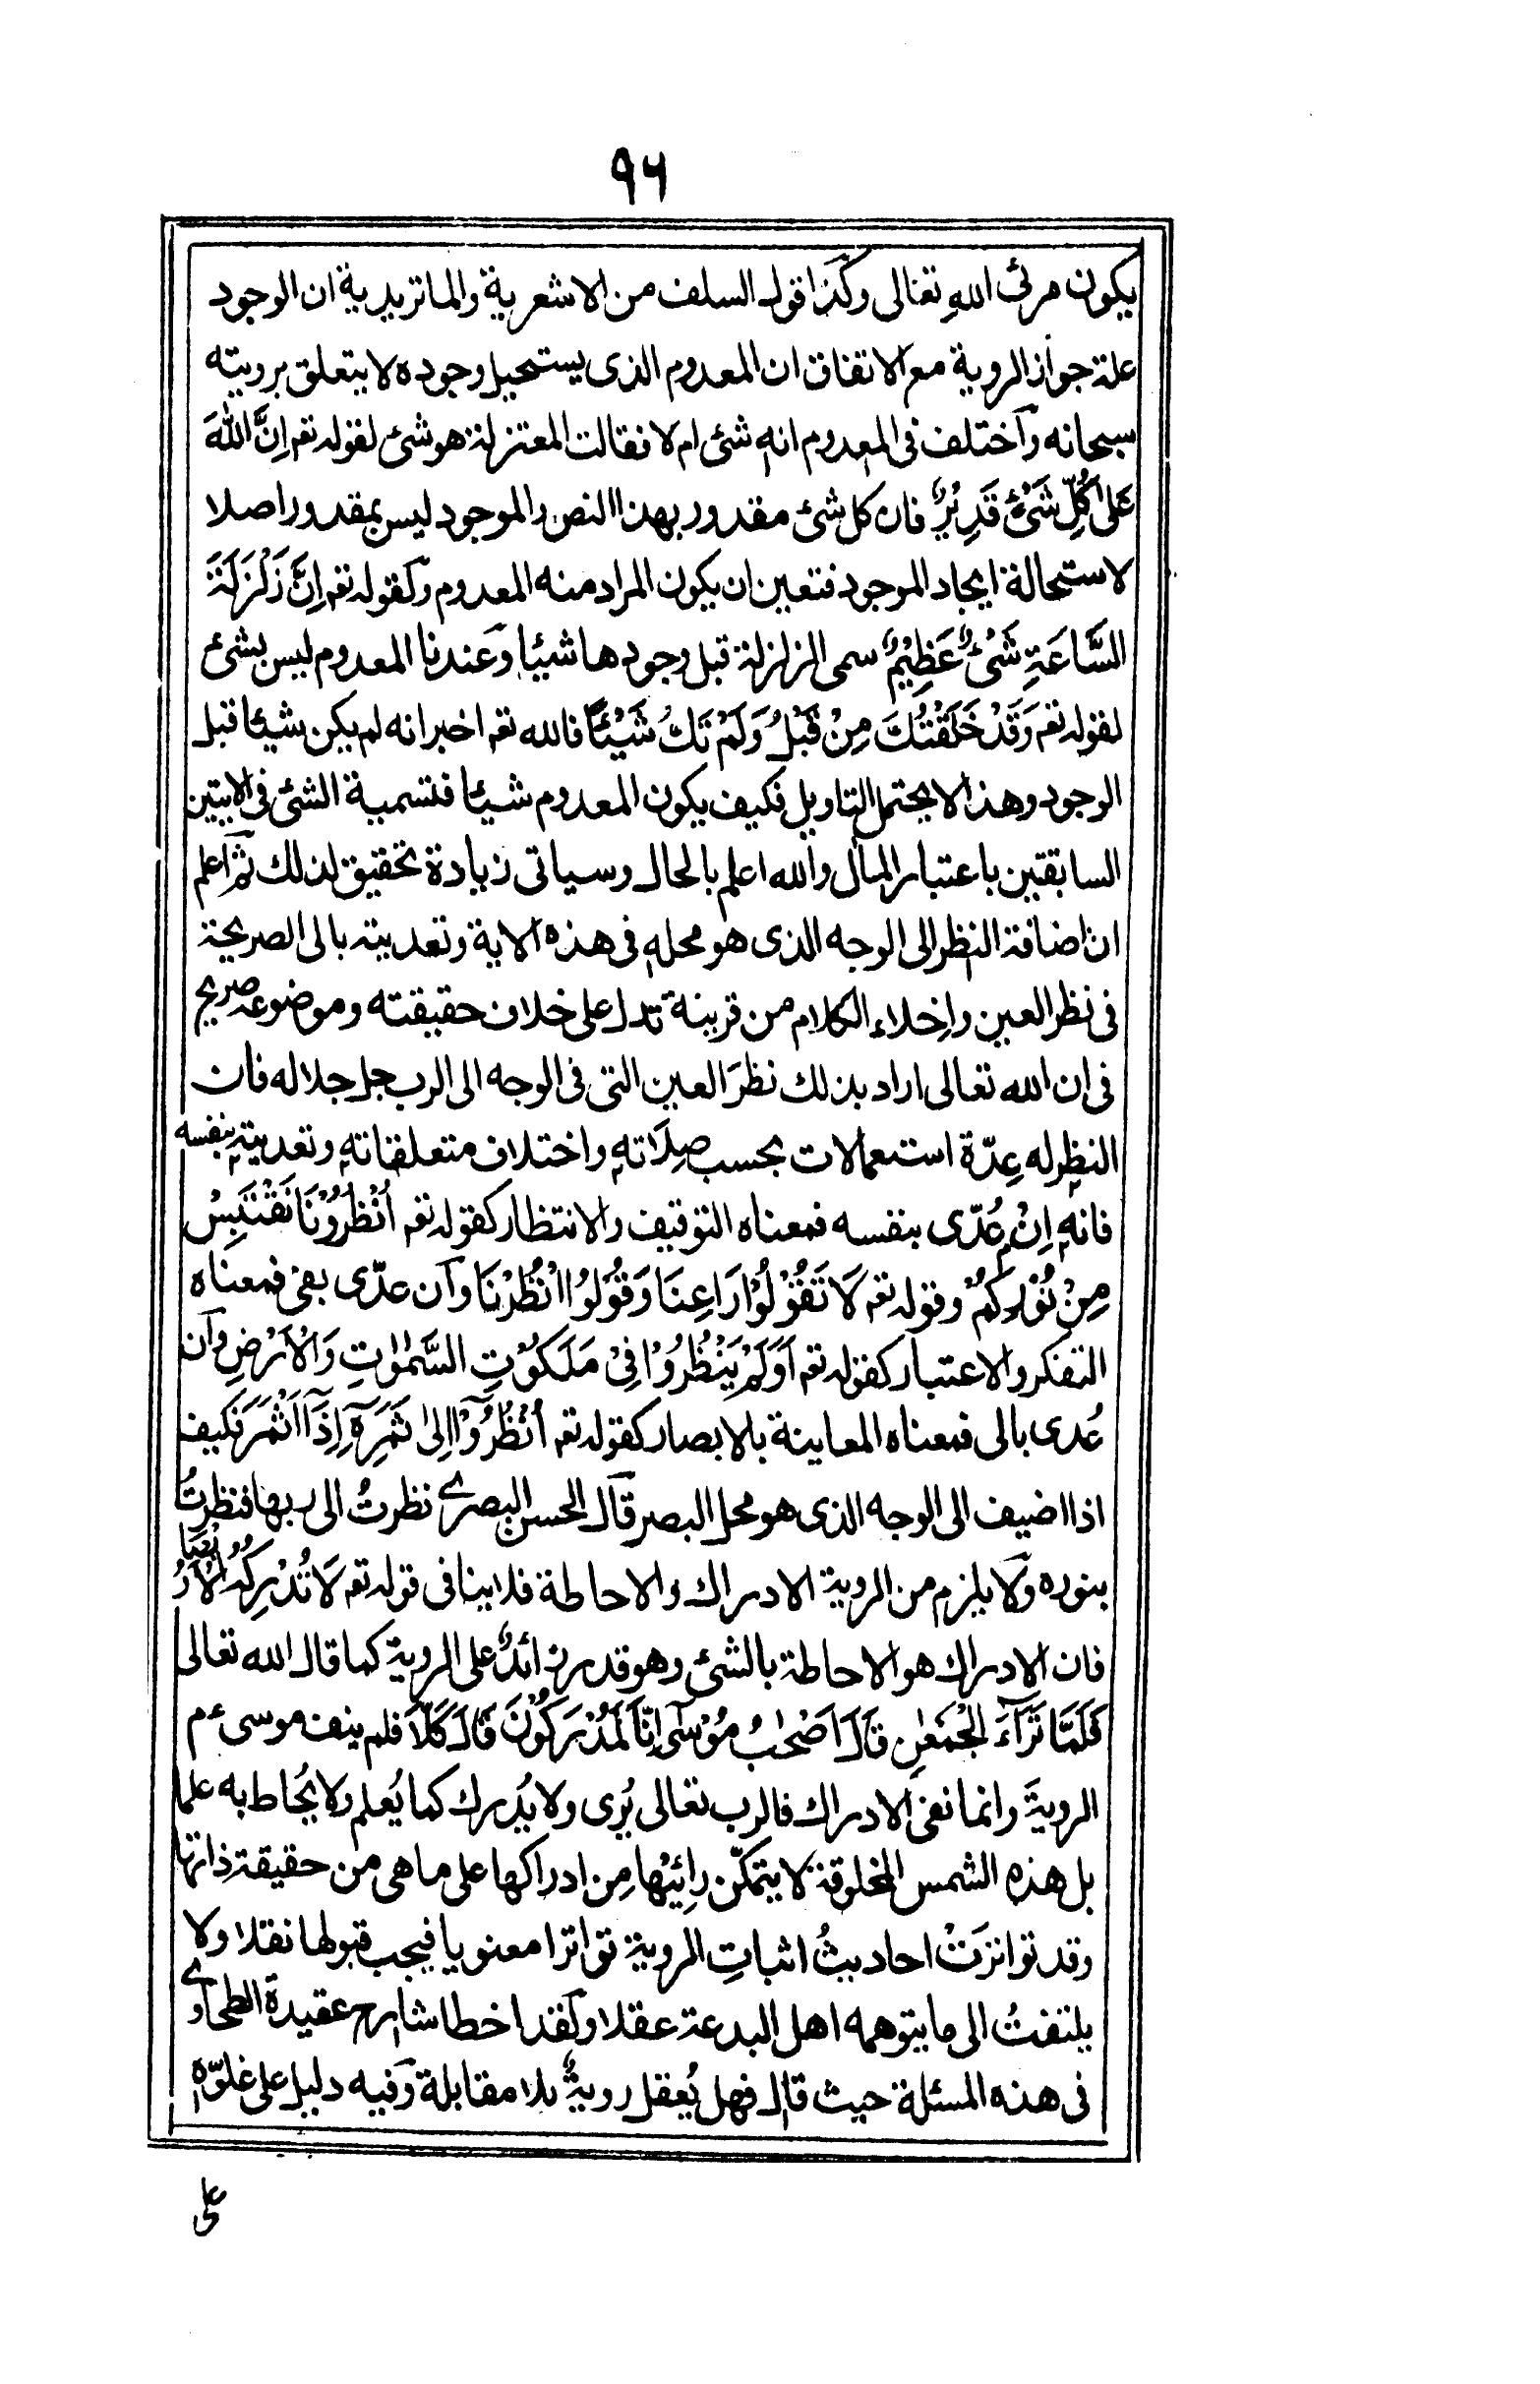 ٩٦
يكون مرئى اللهِ تعالى وكذا قول السلف من الاشعرية والماتريدية ان الوجود
علة جواز الروية مع الاتفاق ان المعدوم الذى يستحيل وجوده لا يتعلق برويته
سبحانه وآختلف فى المعدوم انه شئ ام لا فقالت المعتزلة هو شئ لقوله تعـ اِنَّ اللّٰهَ
عَلٰى كُلِّ شَىْءٍ قَدِيْرٌ فان كل شئ مقدور بهذا النص والموجود ليس بمقدور اصلا
لاستحالة ايجاد الموجود فتعين ان يكون المراد منه المعدوم وكقوله تعـ اِنَّ زَلْزَلَةَ
السَّاعَةِ شَىْءٌ عَظِيْمٌ سمى الزلزلة قبل وجودها شيئا وعندنا المعدوم ليس بشئ
لقوله تعـ وَقَدْ خَلَقْتُكَ مِنْ قَبْلُ وَلَمْ تَكُ شَيْئًا فالله تعـ اخبر انه لم يكن شيئا قبل
الوجود وهذا لا يحتمل التاويل فكيف يكون المعدوم شيئا فتسمية الشئ فى الايتين
السابقتين باعتبار المآل والله اعلم بالحال وسياتى زيادة تحقيق لذلك ثم اعلم
ان اضافة النظر الى الوجه الذى هو محله فى هذه الاية وتعديته بالى الصريحة
فى نظر العين واِخلاء الكلام من قرينة تدل على خلاف حقيقته وموضوعه صريح
فى ان الله تعالى اراد بذلك نظرَ العين التى فى الوجه الى الرب جل جلاله فان
النظر له عِدّة استعمالات بحسب صِلَاته واختلاف متعلقاته وتعديته بنفسه
فانه اِنْ عُدّى بنفسه فمعناه التوقيف والانتظار كقوله تعـ اُنْظُرُوْنَا نَقْتَبِسْ
مِنْ نُوْرِكُمْ وقوله تعـ لَا تَقُوْلُوْا رَاعِنَا وَقُوْلُوا انْظُرْنَا وآن عدّى بفى فمعناه
التفكر والاعتبار كقوله تعـ اَوَلَمْ يَنْظُرُوْا فِىْ مَلَكُوْتِ السَّمٰوٰتِ وَالْاَرْضِ وآن
عُدى بالى فمعناه المعاينة بالابصار كقوله تعـ اُنْظُرُوْآ اِلٰى ثَمَرِهٖ اِذَا اَثْمَرَ فكيف
اذا اضيف الى الوجه الذى هو محل البصر قآل الحسن البصرى نظرتُ الى ربها فنظرتُ
بنوره ولا يلزم من الروية الادراك والاحاطة فلا ينافى قوله تعـ لَا تُدْرِكُهُ الْاَبْصَارُ
فان الادراك هو الاحاطة بالشئ وهو قدر زائدٌ على الروية كما قال الله تعالى
فَلَمَّا تَرَآءَ الْجَمْعٰنِ قَالَ اَصْحٰبُ مُوْسٰى اِنَّا لَمُدْرَكُوْنَ قَالَ كَلَّا فلم ينف موسى عم
الرويةَ وانما نفى الادراك فالرب تعالى يُرى ولا يُدرك كما يُعلم ولا يُحاط به علما
بل هذهِ الشمس المخلوقة لا يتمكّن رائيْها مِن ادراكها على ما هى من حقيقة ذاتها
وقد تواترَتْ احاديثُ اثباتِ الروية تواترا معنويا فيجب قبولها نقلا ولا
يلتفتُ الى ما يتوهمه اهل البدعة عقلا ولقد اخطا شارح عقيدة الطحاوى
فى هذه المسئلة حيث قال فهل يُعقل رويةٌ بلا مقابلة وفيه دليل على علوّه
على